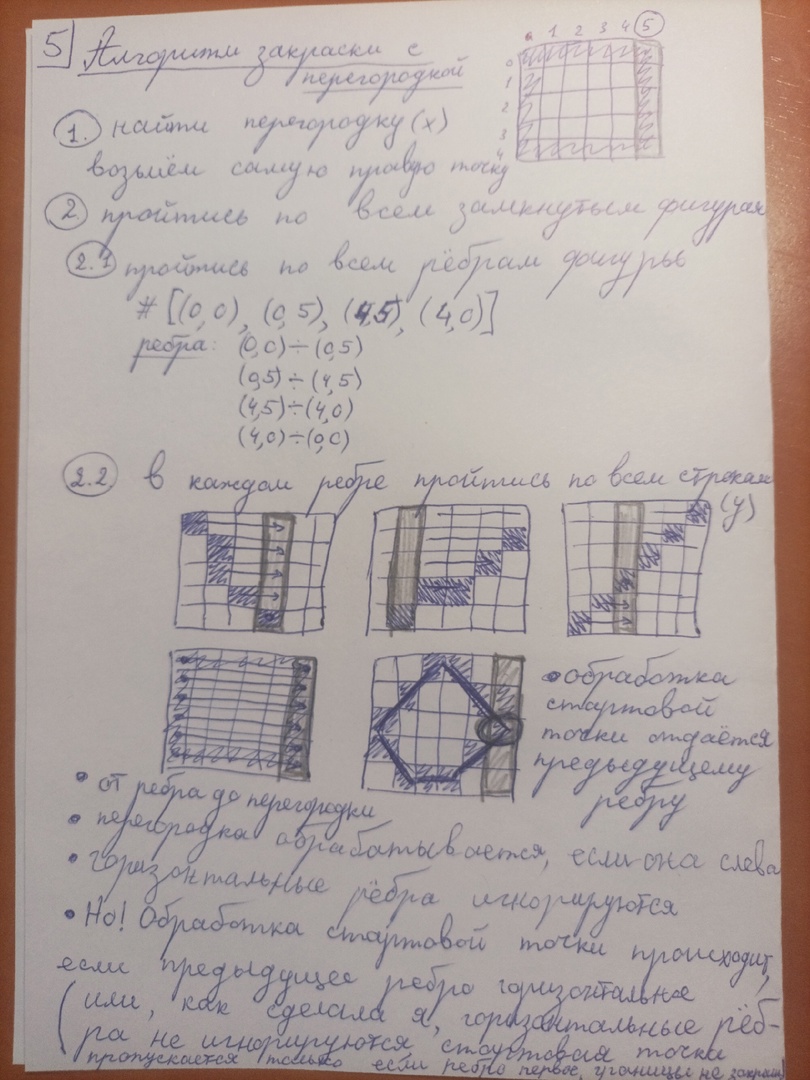 5 Алгоритм закраски с
перегородкой
0 1 2 3 4 5
0
1
2
3
4
1. найти перегородку (x)
возьмём самую праву точку
2 пройтись по всем замкнутым фигурам
2.1 пройтись по всем рёбрам фигуры
# [(0,0), (0,5), (4,5), (4,0)]
ребра: (0,0)÷(0,5)
(0,5)÷(4,5)
(4,5)÷(4,0)
(4,0)÷(0,0)
2.2 в каждом ребре пройтись по всем строкам
(y)
• обработка
стартовой
точки отдаётся
предыдущему
ребру
• от ребра до перегородки
• перегородка обрабатывается, если она слева
• горизонтальные рёбра игнорируются
• Но! Обработка стартовой точки происходит,
если предыдущее ребро горизонтальное
(или, как сделала я, горизонтальные рёб-
ра не игнорируются, стартовая точка
пропускается только если ребро первое, границы не закраш)